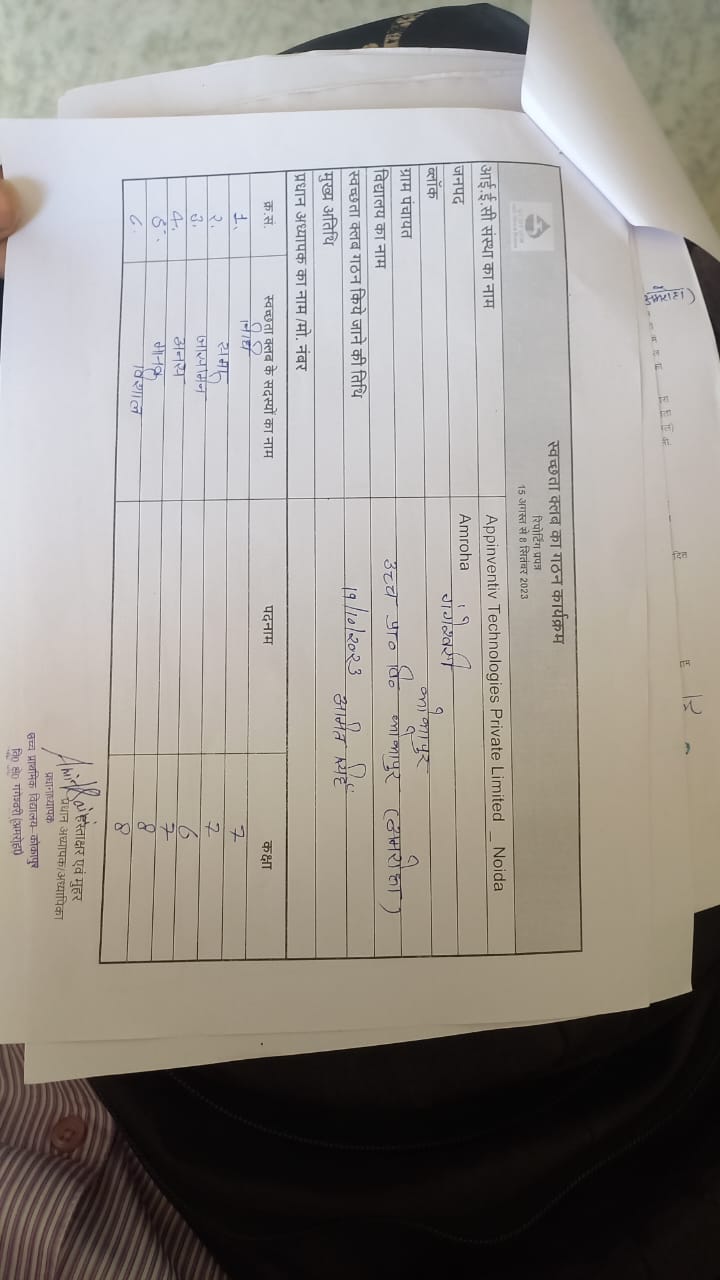 स्वच्छता क्लब का गठन कार्यक्रम
रिपोर्टिंग प्रपत्र
15 अगस्त से 8 सितंबर 2023
आई.ई.सी संस्था का नाम Appinventiv Technologies Private Limited _ Noida
जनपद Amroha
ब्लॉक गंगेश्वरी
ग्राम पंचायत
विद्यालय का नाम उच्च प्रा० वि०
स्वच्छता क्लब गठन किये जाने की तिथि १९/१०/२०२३
मुख्य अतिथि
प्रधान अध्यापक का नाम /मो. नंबर
क्र.सं. स्वच्छता क्लब के सदस्यों का नाम पदनाम कक्षा
१. निधि 7
२. 7
३. 6
४. अनस 7
५. 8
६. विशाल 8
हस्ताक्षर एवं मुहर
प्रधान अध्यापक/अध्यापिका
प्रधानाध्यापक
उच्च प्राथमिक विद्यालय- कोकापुर
वि० क्षे० गंगेश्वरी (अमरोहा)